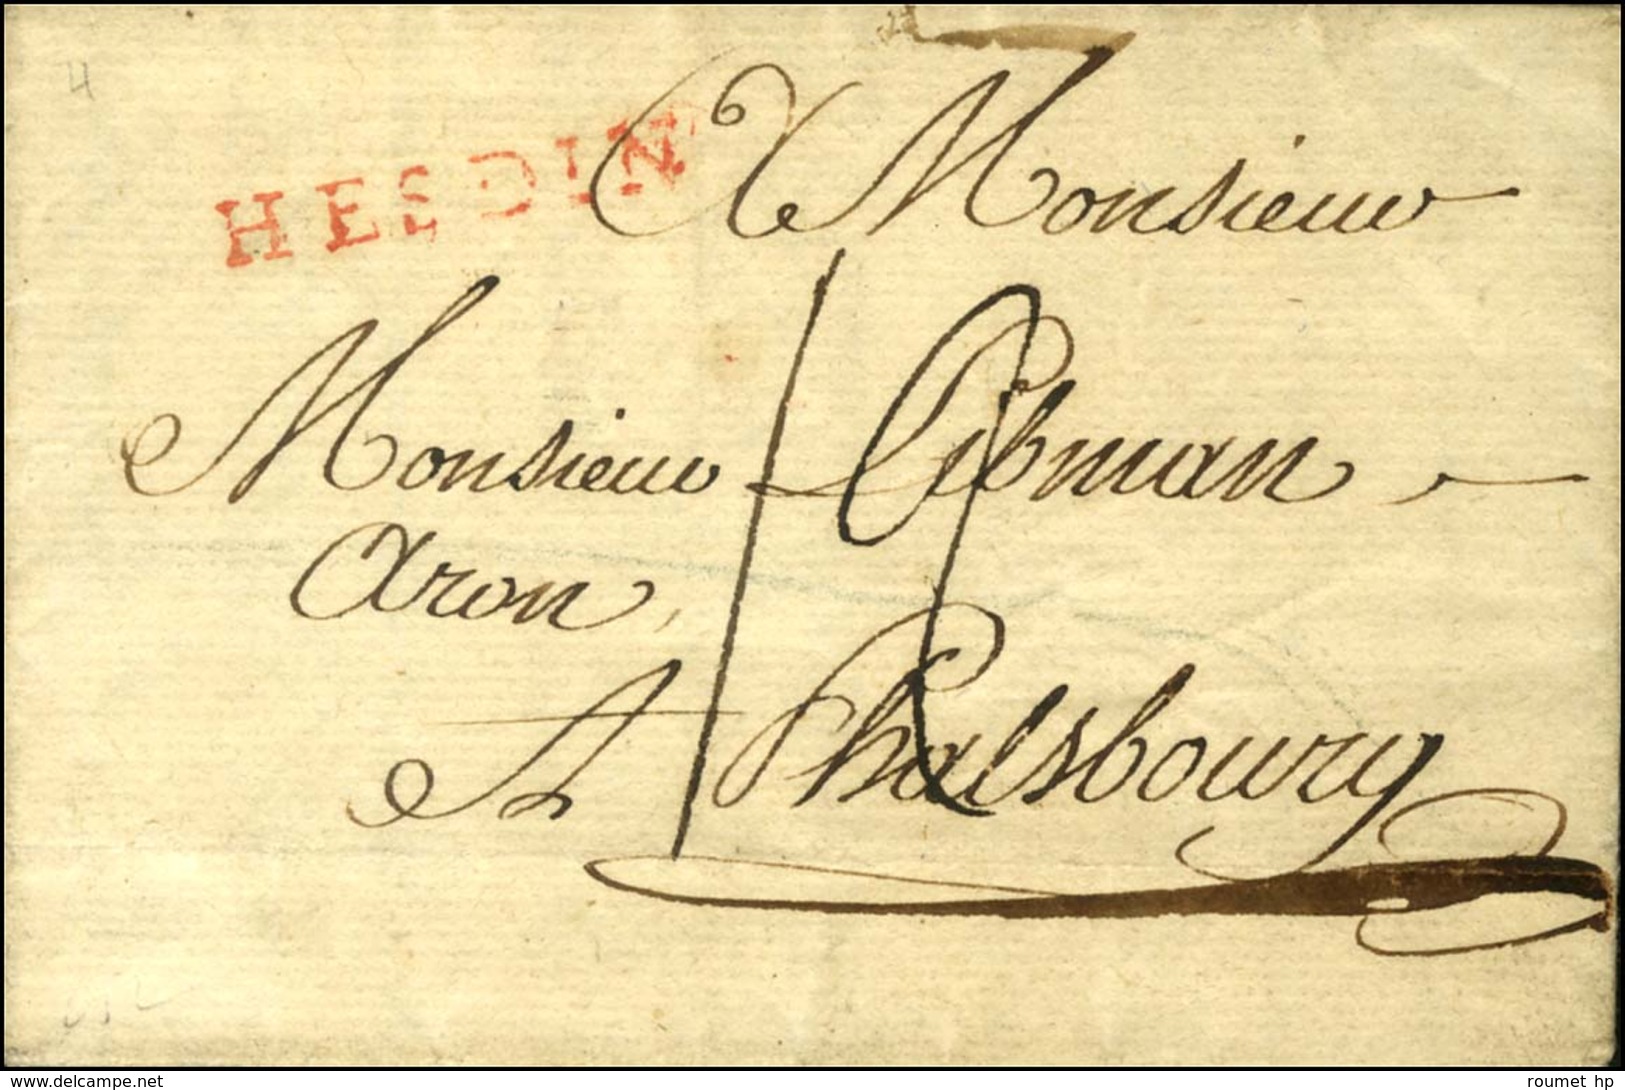 HESDIN
A Monsieur
Monsieur Libman
Aron,
A Phalsbourg
www.delcampe.net
roumet hp